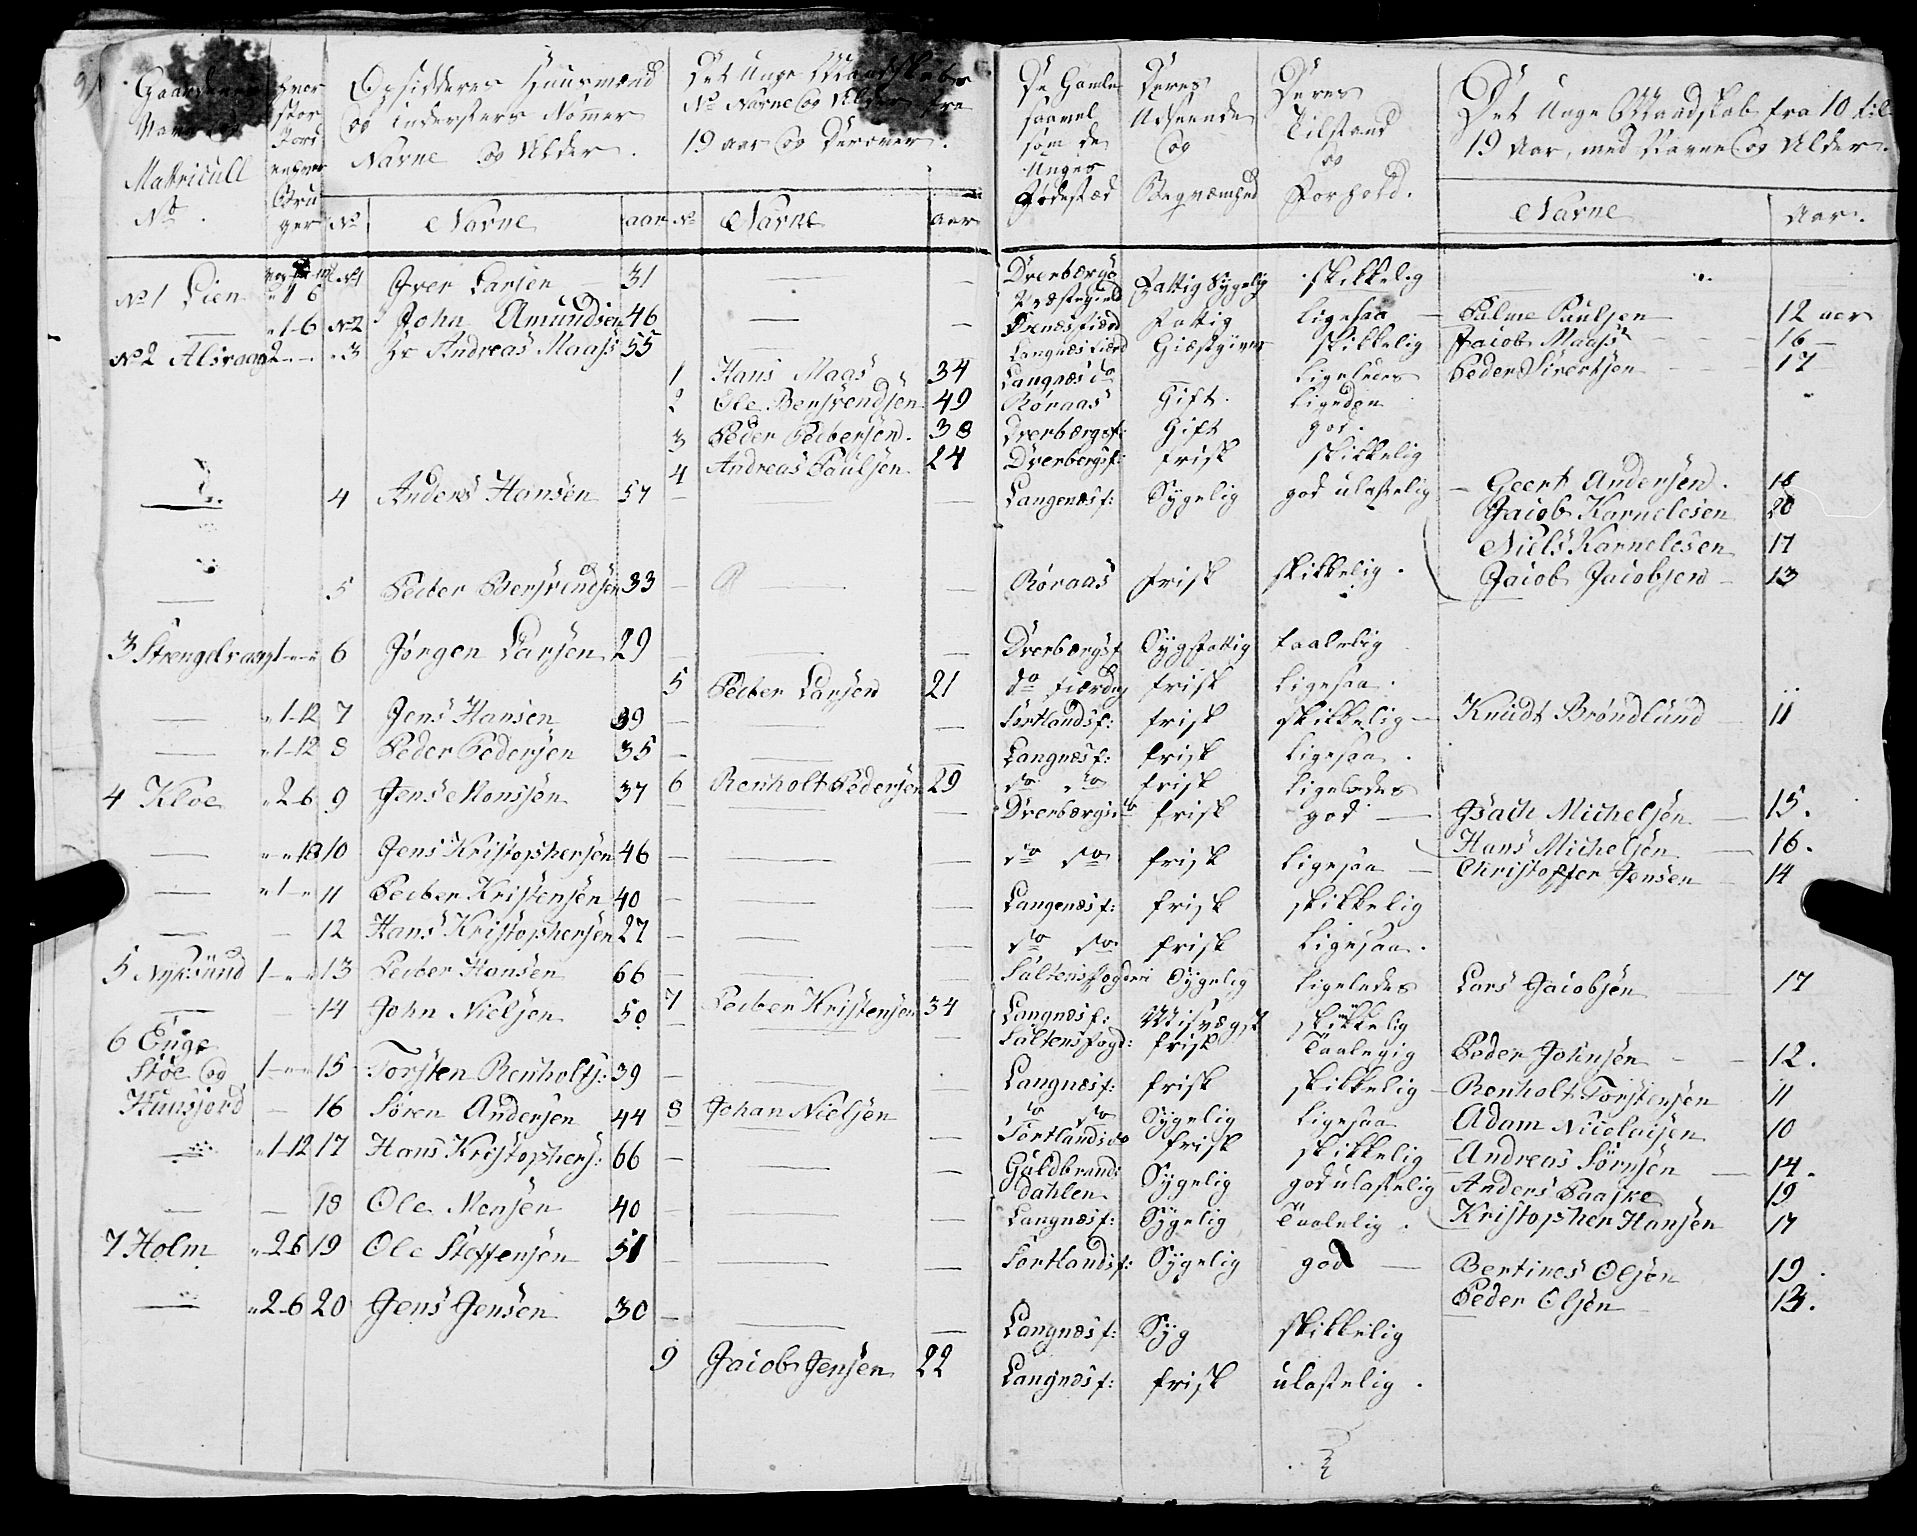 Gaardenes Navn og Mattricull No.
Hvor stor Jord enhver Bruger
Opsidderes Huusmænd og Indersters Nommer Navne og Alder.
Det Unge Mandskabs No. Navne og Alder fra 19 aar og Derover.
De Gamle saavel som de Unges Fødestæd
Deres Udseende og Beqvæmhed
Deres Tilstand og Forhold.
Det Unge Mandskab fra 10 til 19 Aar, med Navne og Alder.
No. Navne aar No. Navne aar Navne Aar.
No 1 Lien 1 6 No 1 Iver Larsen 31 — — Dverbergs Fattig Sygelig skikkelig
— 1-6 No 2 John Amundsen 46 — — Fattig ligesaa — Palme Paulsen 12 aar
No 2 Alsvaag 2 - - 3 Hr Andreas Maass 55 — Langnæsfiærd Giæstgiver skikkelig Jacob Maass 16 —
1 Hans Maas 34 Langnæs do ligeledes Peder Sivertsen 17
2 Ole Bersvendsen 49 Røraas Gift. ligeden
3 Peder Pedersen. 38 Dverbergsf: Gift god.
4 Andreas Paulsen 24 Dverbergsf: frisk skikkelig
— 4 Anders Hansen 57 — — — Langenæsf: Sygelig god ulastelig — Geert Andersen. 18
Jacob Kornelesen 20
Niels Kornelesen 17
— 5 Peder Bersvendsen 33 — — — Røraas frisk skikkelig. Jacob Jacobsen 13
3 Strengelvaag 1 - - 6 Jørgen Larsen 29 — — Dverbergsf Syg fattig taalelig
5 Peder Larsen 21 do fierding frisk ligesaa.
— 1-12 7 Jens Hansen 39 — — — Sortlandsf: frisk skikkelig — Knudt Brøndlund 11
— 1-12 8 Peder Pedersen 35 — — Langnæsf: frisk ligesaa.
4 Kloe 2-6 9 Jens Monssen 37 6 Renholt Pedersen 29 do do frisk ligeledes
— — Dverbergs do frisk god — Isach Michelsen — 15.
— 18 10 Jens Kristophersen 46 — — — do do frisk ligesaa — Hans Michelsen — 16.
Christoffer Jensen 14
— 1 - 11 Peder Kristensen 40 — — — Langenæsf: frisk skikkelig
— — 12 Hans Kristophersen 27 — — — do do frisk ligesaa.
5 Nyksund 1 - - 13 Peder Hansen 66 — — — Saltensfogderi Sygelig ligeledes Lars Jacobsen 17
7 Peder Kristensen 34 Langnæsf: skikkelig
— — 14 John Nielsen 50 — — — Saltensfogd: frisk Peder Johnsen — 12.
6 Enge
Støe og 1 - - 15 Torsten Renholts: 39 — — Langnæsf: frisk skikkelig — Renholt Torstensen 11
— 16 Søren Andersen 44 8 Johan Nielsen do do Sygelig ligesaa Adam Nicolaisen 10
— Sortlands do frisk skikkelig Andreas Sørnsen 14.
— 1-12 17 Hans Kristophers: 66 — — — Guldbrands dahlen Sygelig god ulastelig Anders 19
— — 18 Ole Monsen 40 — — — Langnæsf: Sygelig Taalelig. Kristopher Hansen 17
7 Holm 2-6 19 Ole Steffensen 51 — — — Sortlandsf: Sygelig god — Bertines Olsen 19
Peder Olsen 13.
— 2-6 20 Jens Jensen 30 — — — Langnæsf: Syg skikkelig
9 Jacob Jensen 22 Langnæsf: frisk ulastelig.